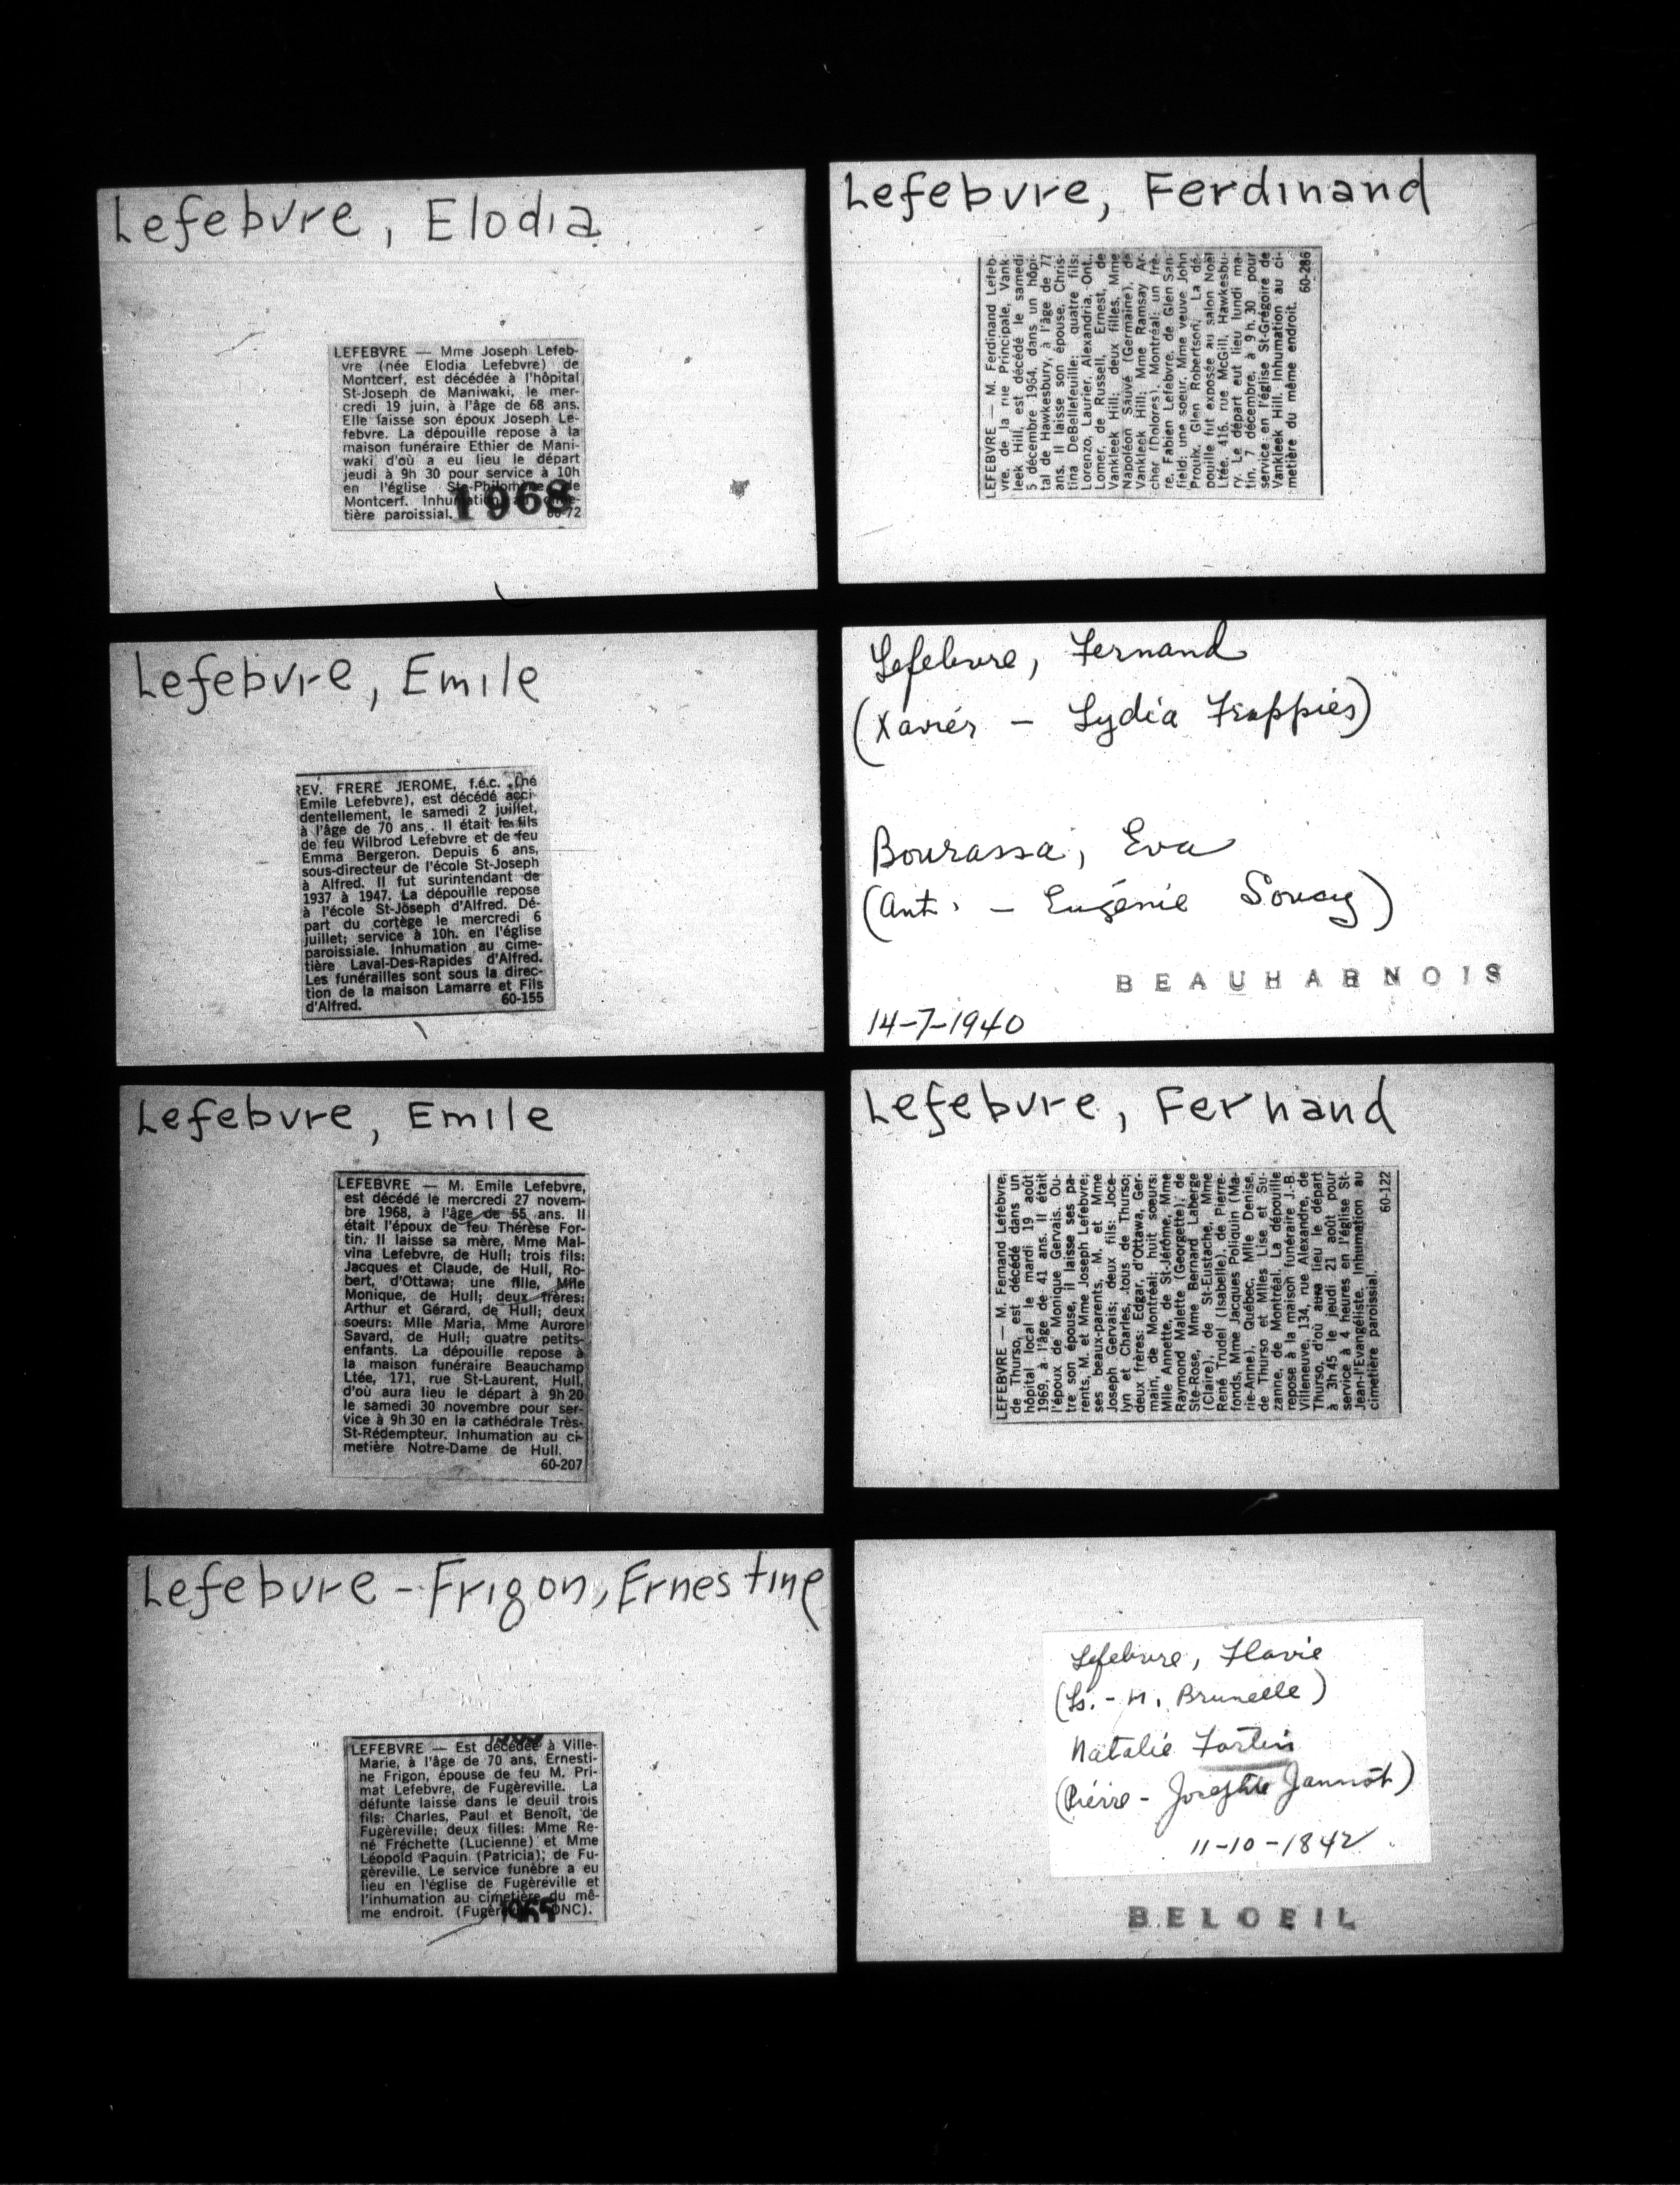 Lefebvre, Elodia
LEFEBVRE — Mme Joseph Lefeb-
vre (née Elodia Lefebvre) de
Montcerf, est décédée à l'hôpital
St-Joseph de Maniwaki, le mer-
credi 19 juin, à l'âge de 68 ans.
Elle laisse son époux Joseph Le-
febvre. La dépouille repose à la
maison funéraire Ethier de Mani-
waki d'où a eu lieu le départ
jeudi à 9h 30 pour service à 10h
en l'église Ste-Philomène de
Montcerf. Inhumation au cime-
tière paroissial.
1968
Lefebvre, Emile
REV. FRERE JEROME, f.é.c. (né
Emile Lefebvre), est décédé acci-
dentellement, le samedi 2 juillet,
à l'âge de 70 ans. Il était le fils
de feu Wilbrod Lefebvre et de feu
Emma Bergeron. Depuis 6 ans,
sous-directeur de l'école St-Joseph
à Alfred. Il fut surintendant de
1937 à 1947. La dépouille repose
à l'école St-Joseph d'Alfred. Dé-
part du cortège le mercredi 6
juillet; service à 10h. en l'église
paroissiale. Inhumation au cime-
tière Laval-Des-Rapides d'Alfred.
Les funérailles sont sous la direc-
tion de la maison Lamarre et Fils
d'Alfred. 60-155
Lefebvre, Emile
LEFEBVRE — M. Emile Lefebvre,
est décédé le mercredi 27 novem-
bre 1968, à l'âge de 55 ans. Il
était l'époux de feu Thérèse For-
tin. Il laisse sa mère, Mme Mal-
vina Lefebvre, de Hull; trois fils:
Jacques et Claude, de Hull, Ro-
bert, d'Ottawa; une fille, Mlle
Monique, de Hull; deux frères:
Arthur et Gérard, de Hull; deux
soeurs: Mlle Maria, Mme Aurore
Savard, de Hull; quatre petits-
enfants. La dépouille repose à
la maison funéraire Beauchamp
Ltée, 171, rue St-Laurent, Hull,
d'où aura lieu le départ à 9h 20
le samedi 30 novembre pour ser-
vice à 9h 30 en la cathédrale Très-
St-Rédempteur. Inhumation au ci-
metière Notre-Dame de Hull.
60-207
Lefebvre-Frigon, Ernestine
LEFEBVRE — Est décédée à Ville-
Marie, à l'âge de 70 ans, Ernesti-
ne Frigon, épouse de feu M. Pri-
mat Lefebvre, de Fugèreville. La
défunte laisse dans le deuil trois
fils: Charles, Paul et Benoît, de
Fugèreville; deux filles: Mme Re-
né Fréchette (Lucienne) et Mme
Léopold Paquin (Patricia); de Fu-
gèreville. Le service funèbre a eu
lieu en l'église de Fugèreville et
l'inhumation au cimetière du mê-
me endroit. DNC).
1965
Lefebvre, Ferdinand
LEFEBVRE — M. Ferdinand Lefeb-
vre, de la rue Principale, Vank-
leek Hill, est décédé le samedi
5 décembre 1964, dans un hôpi-
tal de Hawkesbury, à l'âge de 77
ans. Il laisse son épouse, Chris-
tina DeBellefeuille; quatre fils:
Lorenzo, Laurier, Alexandria, Ont.,
Lomer, de Russell, Ernest, de
Vankleek Hill; deux filles, Mme
Napoléon Sauvé (Germaine), de
Vankleek Hill; Mme Ramsay Ar-
cher (Dolores), Montréal; un frè-
re, Fabien Lefebvre, de Glen San-
field; une soeur, Mme veuve John
Proulx, Glen Robertson. La dé-
pouille fut exposée au salon Noël
Ltée, 416, rue McGill, Hawkesbu-
ry. Le départ eut lieu lundi ma-
tin, 7 décembre, à 9 h. 30 pour
service en l'église St-Grégoire de
Vankleek Hill. Inhumation au ci-
metière du même endroit.
60-286
Lefebvre, Fernand
(Xavier – Lydia Frappiès)
Bourassa, Eva
(Ant. – Eugénie Soucy)
BEAUHARNOIS
14-7-1940
Lefebvre, Fernand
LEFEBVRE — M. Fernand Lefebvre,
de Thurso, est décédé dans un
hôpital local le mardi 19 août
1969, à l'âge de 41 ans. Il était
l'époux de Monique Gervais. Ou-
tre son épouse, il laisse ses pa-
rents, M. et Mme Joseph Lefebvre;
ses beaux-parents, M. et Mme
Joseph Gervais; deux fils: Joce-
lyn et Charles, tous de Thurso;
deux frères: Edgar, d'Ottawa, Ger-
main, de Montréal; huit soeurs:
Mlle Annette, de St-Jérôme, Mme
Raymond Malette (Georgette), de
Ste-Rose, Mme Bernard Laberge
(Claire), de St-Eustache, Mme
René Trudel (Isabelle), de Pierre-
fonds, Mme Jacques Poliquin (Ma-
rie-Anne), Québec, Mlle Denise,
de Thurso et Mlles Lise et Su-
zanne, de Montréal. La dépouille
repose à la maison funéraire J.-B.
Villeneuve, 134, rue Alexandre, de
Thurso, d'où aura lieu le départ
à 3h 45 le jeudi 21 août pour
service à 4 heures en l'église St-
Jean-l'Evangéliste. Inhumation au
cimetière paroissial.
60-122
Lefebvre, Flavie
(Ls. - M. Brunelle)
Natalie Fortin
(Pierre - Josephte Jannot)
11-10-1842
BELOEIL